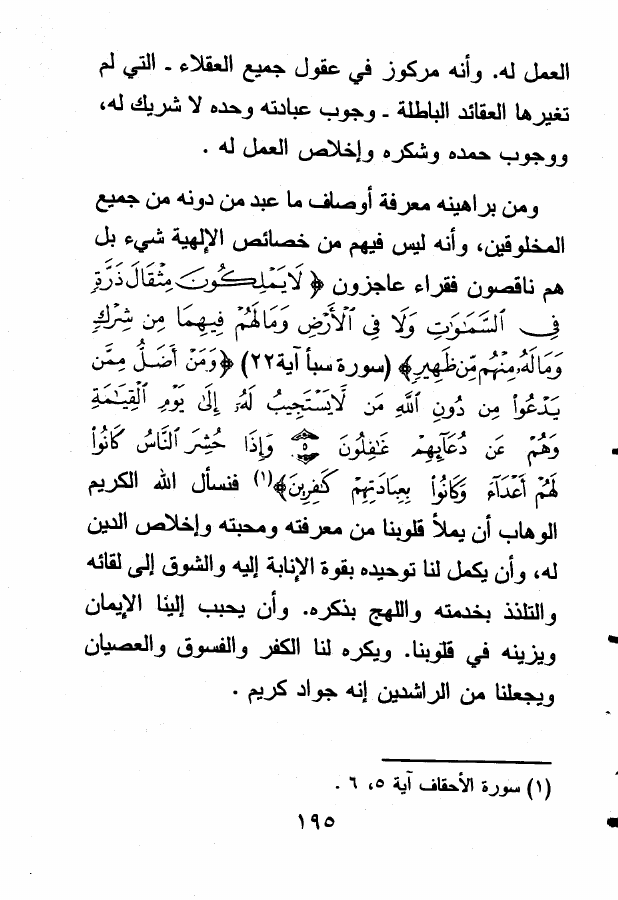 العمل له. وأنه مركوز في عقول جميع العقلاء ـ التي لم
تغيرها العقائد الباطلة ـ وجوب عبادته وحده لا شريك له،
ووجوب حمده وشكره وإخلاص العمل له .
ومن براهينه معرفة أوصاف ما عبد من دونه من جميع
المخلوقين، وأنه ليس فيهم من خصائص الإلهية شيء بل
هم ناقصون فقراء عاجزون ﴿ لَا يَمْلِكُونَ مِثْقَالَ ذَرَّةٍ
فِي السَّمَٰوَٰتِ وَلَا فِي الْأَرْضِ وَمَا لَهُمْ فِيهِمَا مِن شِرْكٍ
وَمَا لَهُ مِنْهُم مِّن ظَهِيرٍ﴾ (سورة سبأ آية ٢٢) ﴿وَمَنْ أَضَلُّ مِمَّن
يَدْعُوا مِن دُونِ اللَّهِ مَن لَّا يَسْتَجِيبُ لَهُ إِلَىٰ يَوْمِ الْقِيَٰمَةِ
وَهُمْ عَن دُعَآئِهِمْ غَٰفِلُونَ ٥ وَإِذَا حُشِرَ النَّاسُ كَانُوا
لَهُمْ أَعْدَآءً وَكَانُوا بِعِبَادَتِهِمْ كَٰفِرِينَ﴾(١) فنسأل الله الكريم
الوهاب أن يملأ قلوبنا من معرفته ومحبته وإخلاص الدين
له، وأن يكمل لنا توحيده بقوة الإنابة إليه والشوق إلى لقائه
والتلذذ بخدمته واللهج بذكره. وأن يحبب إلينا الإيمان
ويزينه في قلوبنا. ويكره لنا الكفر والفسوق والعصيان
ويجعلنا من الراشدين إنه جواد كريم .
(١) سورة الأحقاف آية ٥، ٦ .
١٩٥